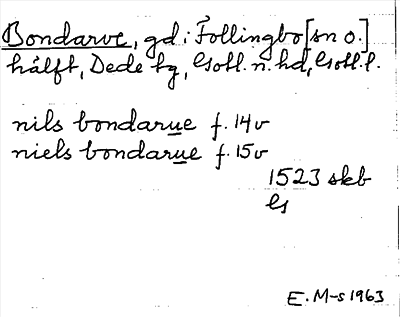 Bondarve, gd i Follingbo [sn o.]
hälft, Dede tg, Gotl. n. hd, Gotl. l.
nils bondarue f. 14v
niels bondarue f. 15v
1523 skb
Gs
E. M-s 1963